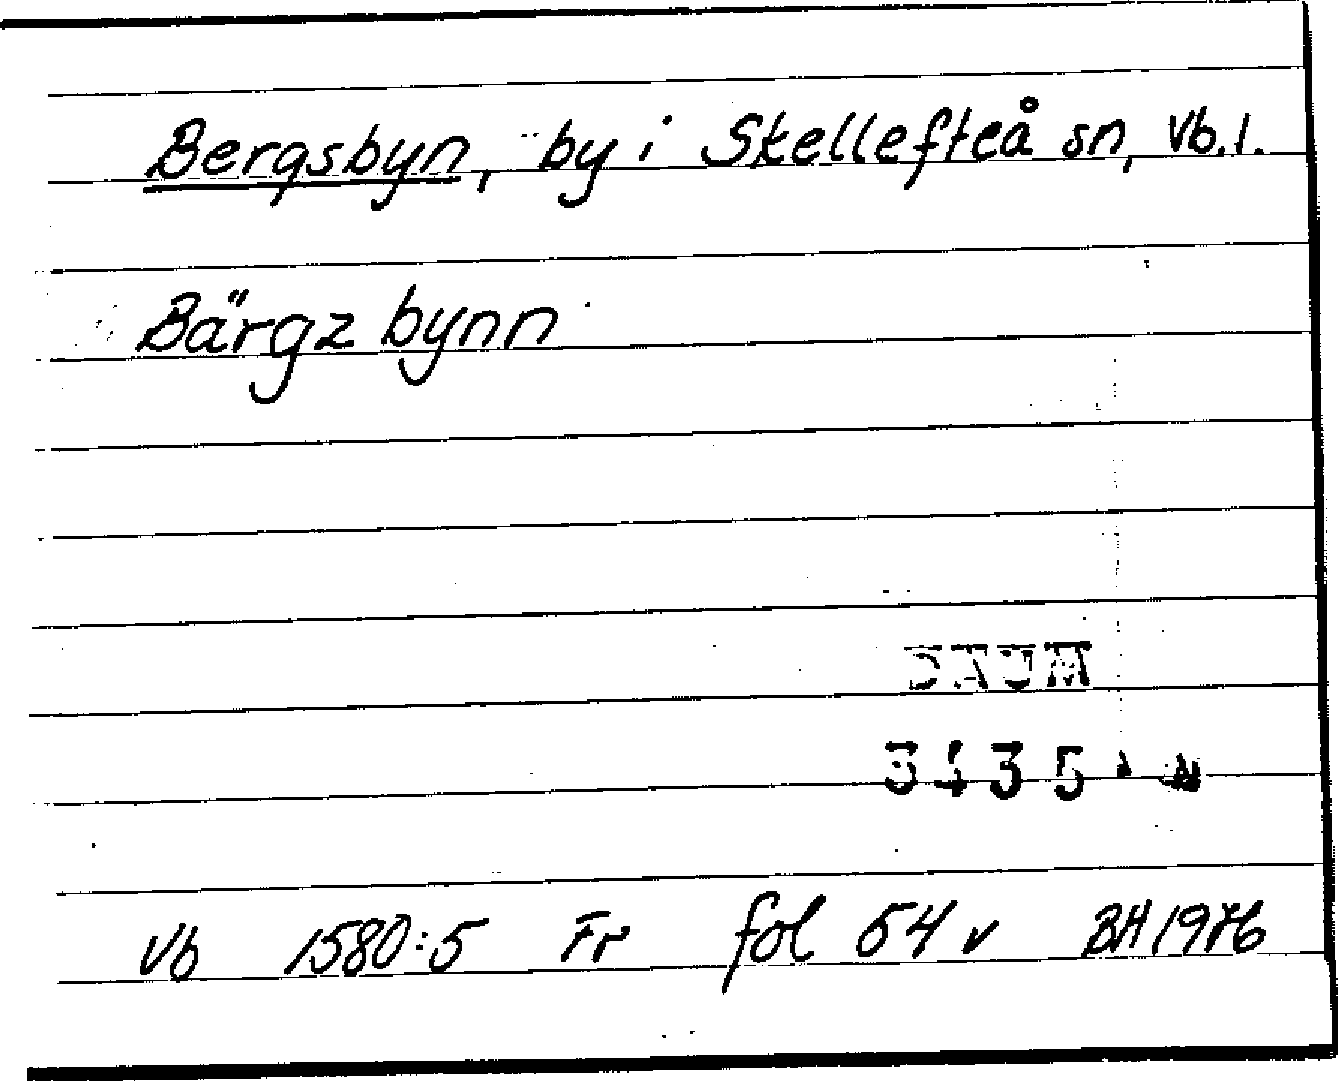 Bergsbyn, by i Skellefteå sn, Vb.l.
Bärgz bynn
DAUM
3435
Vb 1580:5 Fr fol 54 v BH 1976